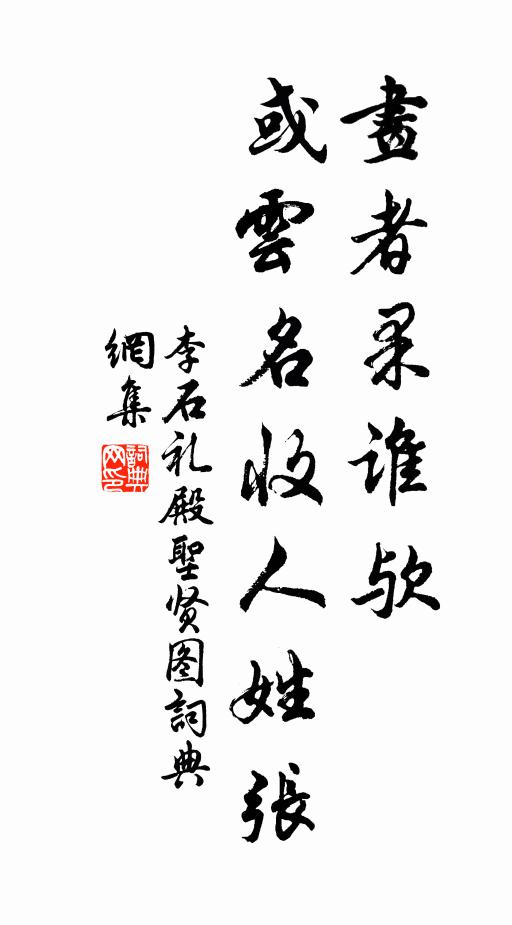 畫者果誰歟
或雲名收人姓張
李石礼殿聖贤图詞典
網集
詞典網印